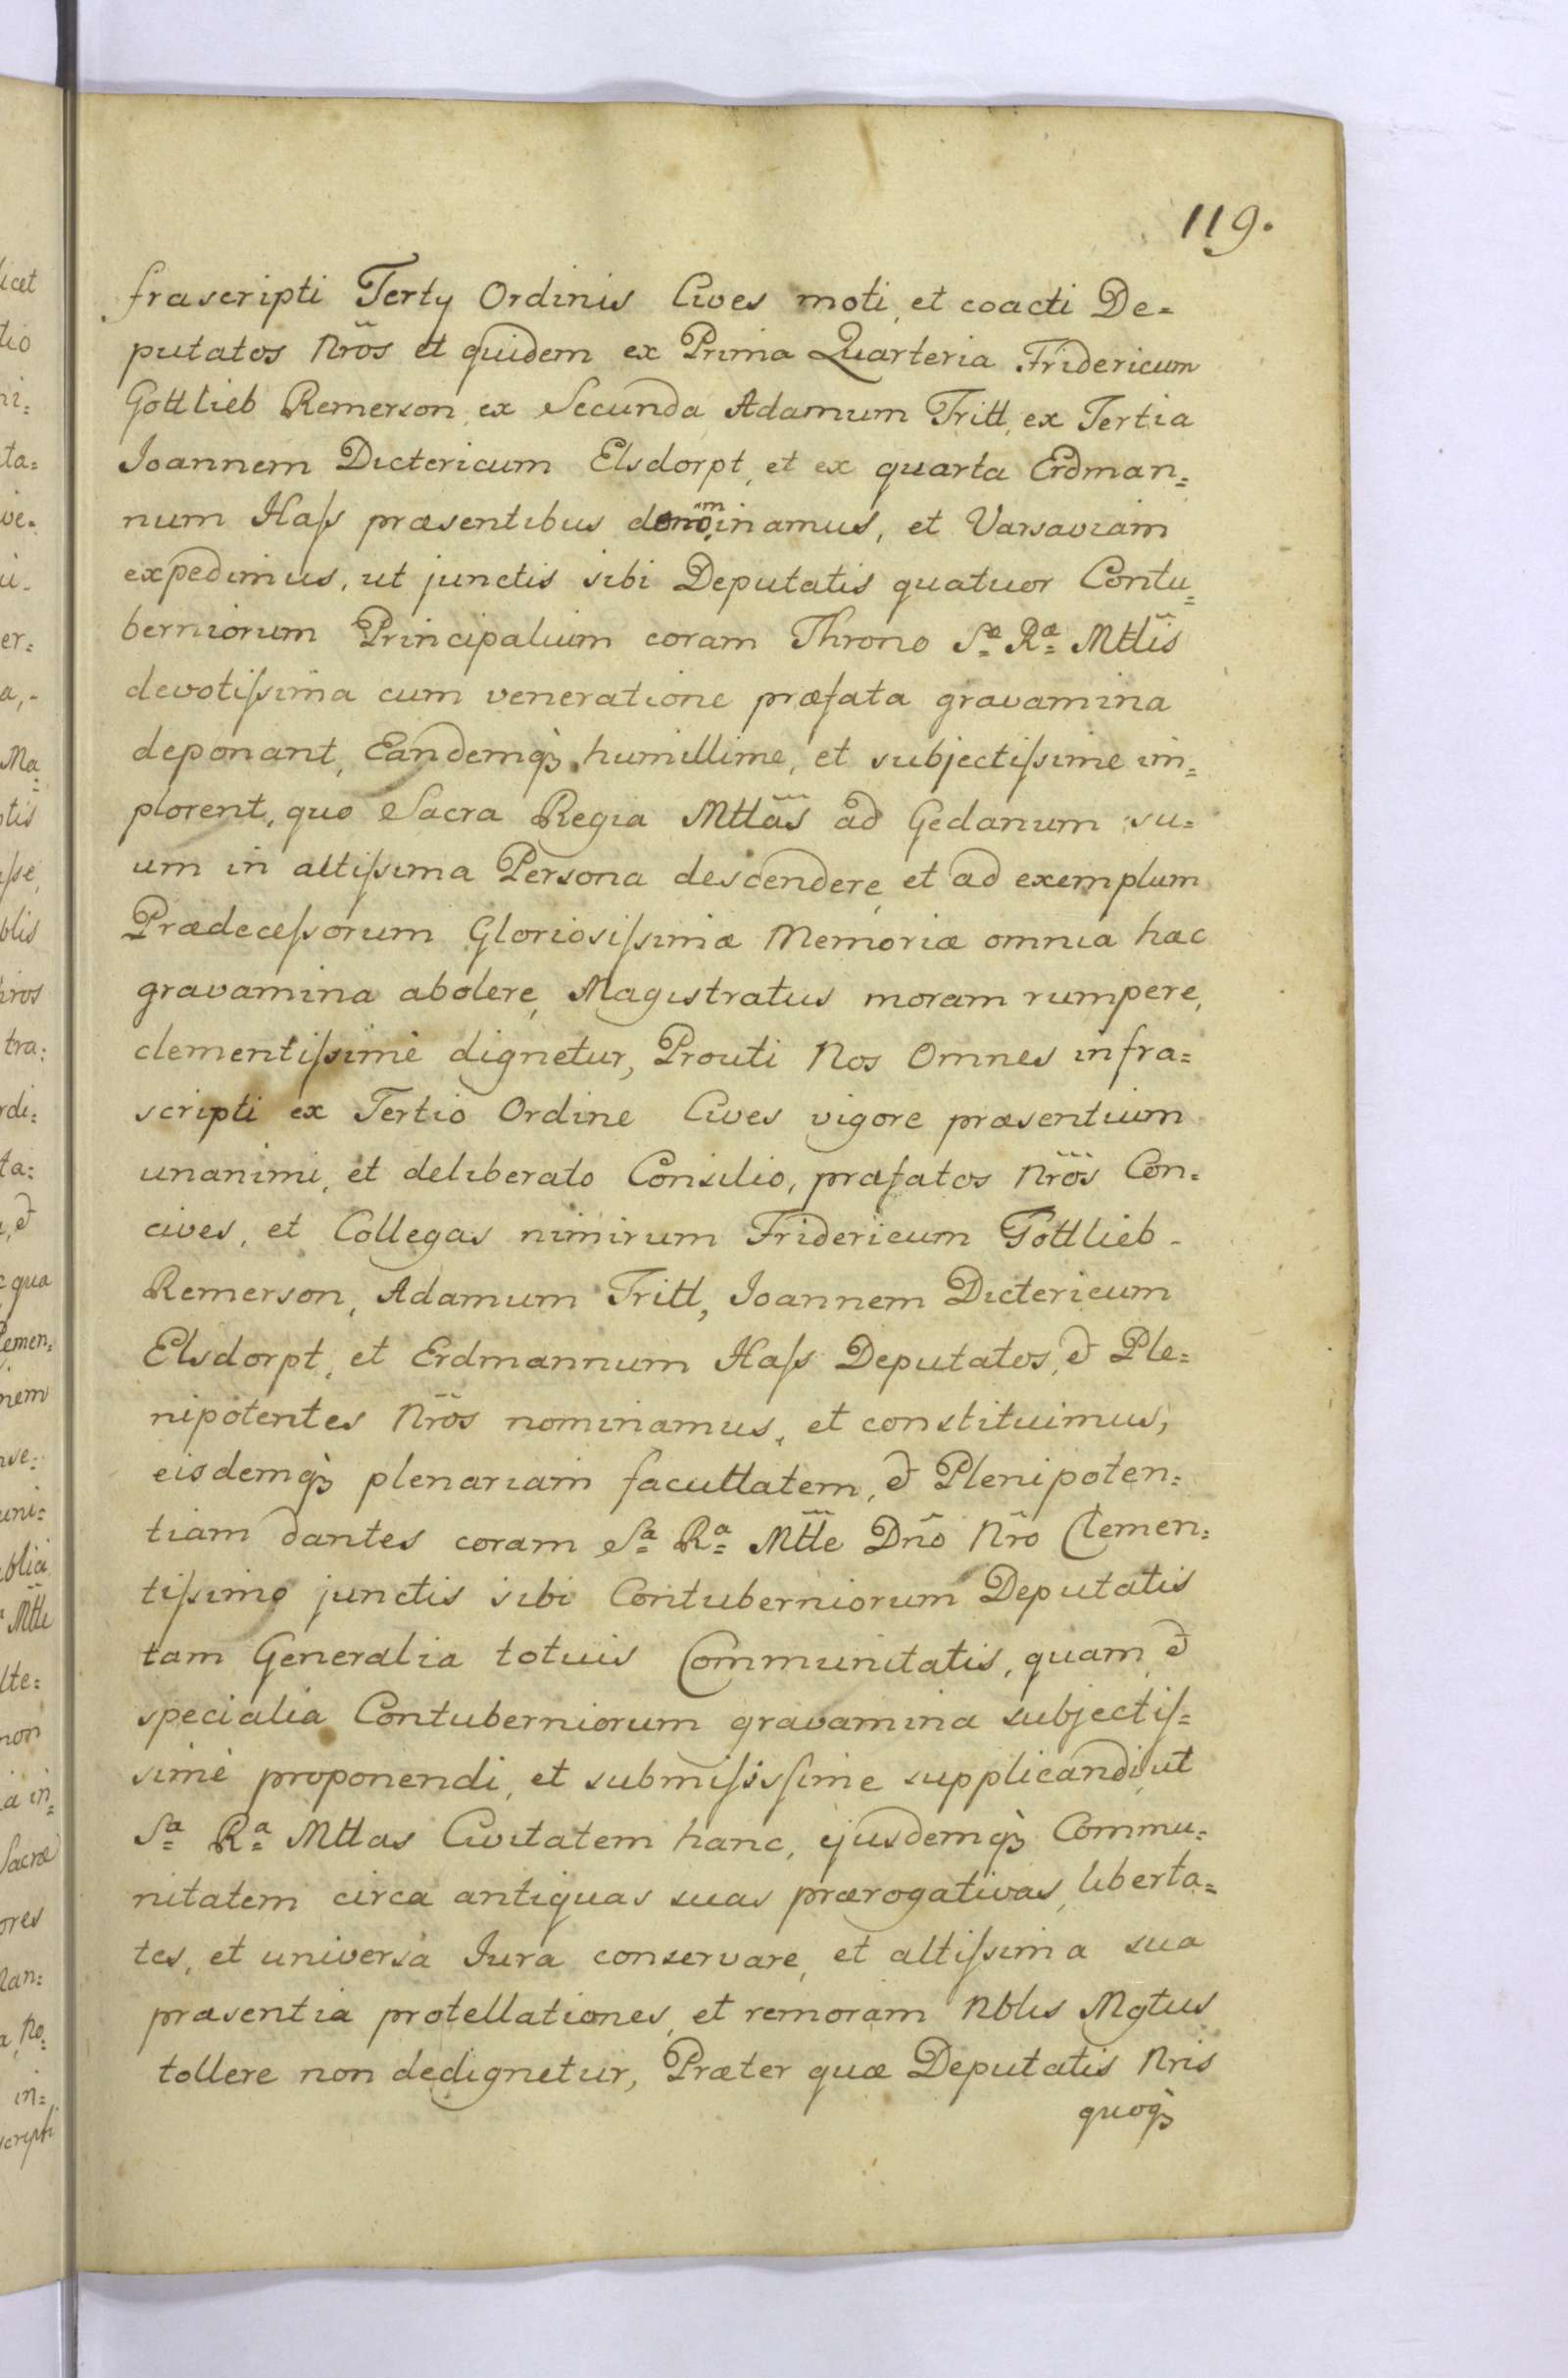 119.
frascripti Terty Ordinis Cives moti, et coacti De=
putatos Nrõs et quidem ex Prima Quarteria Fridericum
Gottlieb Remerson, ex Secunda Adamum Tritt, ex Tertia
Joannem Dictericum Elsdorpt, et ex quarta Erdman=
num Haſs præsentibus denominamus, et Varsaviam
expedimus, ut junctis sibi Deputatis quatuor Contu=
berniorum Principalium coram Throno Sæ Ræ Mttis
devotiſsima cum veneratione præfata gravamina
deponant, Eandemqȝ humillime, et subjectiſsime im=
plorent, quo Sacra Regia Mttas ad Gedanum su=
um in altiſsima Persona descendere, et ad exemplum
Prædeceſsorum Gloriosiſsimæ Memoriæ omnia hac
gravamina abolere, Magistratus moram rumpere,
clementiſsimè dignetur, Prouti Nos Omnes infra=
scripti ex Tertio Ordine Cives vigore præsentium
unanimi, et deliberato Consilio, præfatos Nrõs Con=
cives, et Collegas nimirum Fridericum Gottlieb-
Remerson, Adamum Tritt, Joannem Dictericum
Elsdorpt, et Erdmannum Haſs Deputatos, & Ple=
nipotentes Nrõs nominamus, et constituimus,
eisdemqȝ plenariam facultatem, & Plenipoten=
tiam dantes coram Sa Ra Mtte Dnõ Nrõ Clemen=
tiſsimo junctis sibi Contuberniorum Deputatis
tam Generalia totuis Communitatis, quam &
specialia Contuberniorum gravamina subjectiſ=
simè proponendi, et submiſsisſime supplicandi, ut
Sa Ra Mttas Civitatem hanc, ejusdemqȝ Commu=
nitatem circa antiquas suas prærogativas, liberta=
tes, et universa Jura conservare, et altiſsima sua
præsentia protellationes, et remoram Nblis Mgtus
tollere non dedignetur, Præter quæ Deputatis Nris
quoqȝ